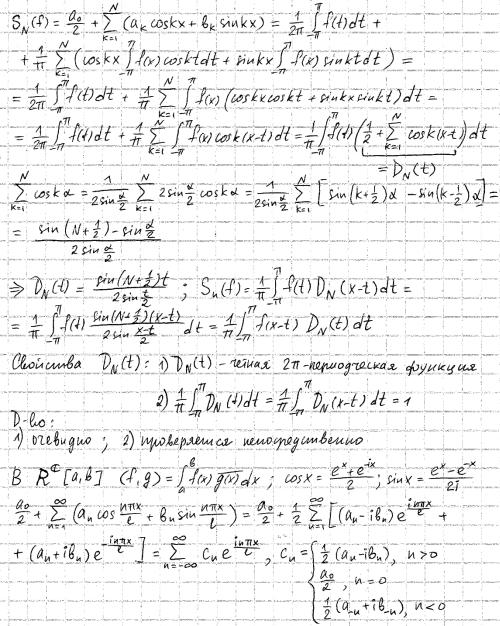 S_N(f) = a₀/2 + Σ_{k=1}^{N} (a_k cos kx + b_k sin kx) = 1/2π ∫_{-π}^{π} f(t)dt +
+ 1/π Σ_{k=1}^{N} (cos kx ∫_{-π}^{π} f(x) cos kt dt + sin kx ∫_{-π}^{π} f(x) sin kt dt) =
= 1/2π ∫_{-π}^{π} f(t)dt + 1/π Σ_{k=1}^{N} ∫_{-π}^{π} f(x) (cos kx cos kt + sin kx sin kt) dt =
= 1/2π ∫_{-π}^{π} f(t)dt + 1/π Σ_{k=1}^{N} ∫_{-π}^{π} f(x) cos k(x-t) dt = 1/π ∫_{-π}^{π} f(t) (1/2 + Σ_{k=1}^{N} cos k(x-t)) dt
= D_N(t)
Σ_{k=1}^{N} cos kα = 1/(2 sin α/2) Σ_{k=1}^{N} 2 sin α/2 cos kα = 1/(2 sin α/2) Σ_{k=1}^{N} [sin(k+1/2)α - sin(k-1/2)α] =
= (sin(N+1/2) - sin α/2)/(2 sin α/2)
⇒ D_N(t) = sin(N+1/2)t/(2 sin t/2) ; S_n(f) = 1/π ∫_{-π}^{π} f(t) D_N(x-t) dt =
= 1/π ∫_{-π}^{π} f(t) sin(N+1/2)(x-t)/(2 sin (x-t)/2) dt = 1/π ∫_{-π}^{π} f(x-t) D_N(t) dt
Свойства D_N(t): 1) D_N(t) - четная 2π-периодческая функция
2) 1/π ∫_{-π}^{π} D_N(t)dt = 1/π ∫_{-π}^{π} D_N(x-t) dt = 1
Д-во:
1) очевидно ; 2) проверяется непосредственно
В R^ℂ[a,b] (f,g) = ∫_a^b f(x) g̅(̅x̅)̅ dx ; cos x = (e^x + e^{-ix})/2 ; sin x = (e^x - e^{-x})/2i
a₀/2 + Σ_{n=1}^{∞} (a_n cos nπx/l + b_n sin nπx/l) = a₀/2 + 1/2 Σ_{n=1}^{∞} [(a_n - ib_n) e^{inπx/l} +
+ (a_n + ib_n) e^{-inπx/l}] = Σ_{n=-∞}^{∞} c_n e^{inπx/l}, c_n = { 1/2 (a_n - ib_n), n>0
a₀/2, n=0
1/2 (a_{-n} + ib_{-n}), n<0